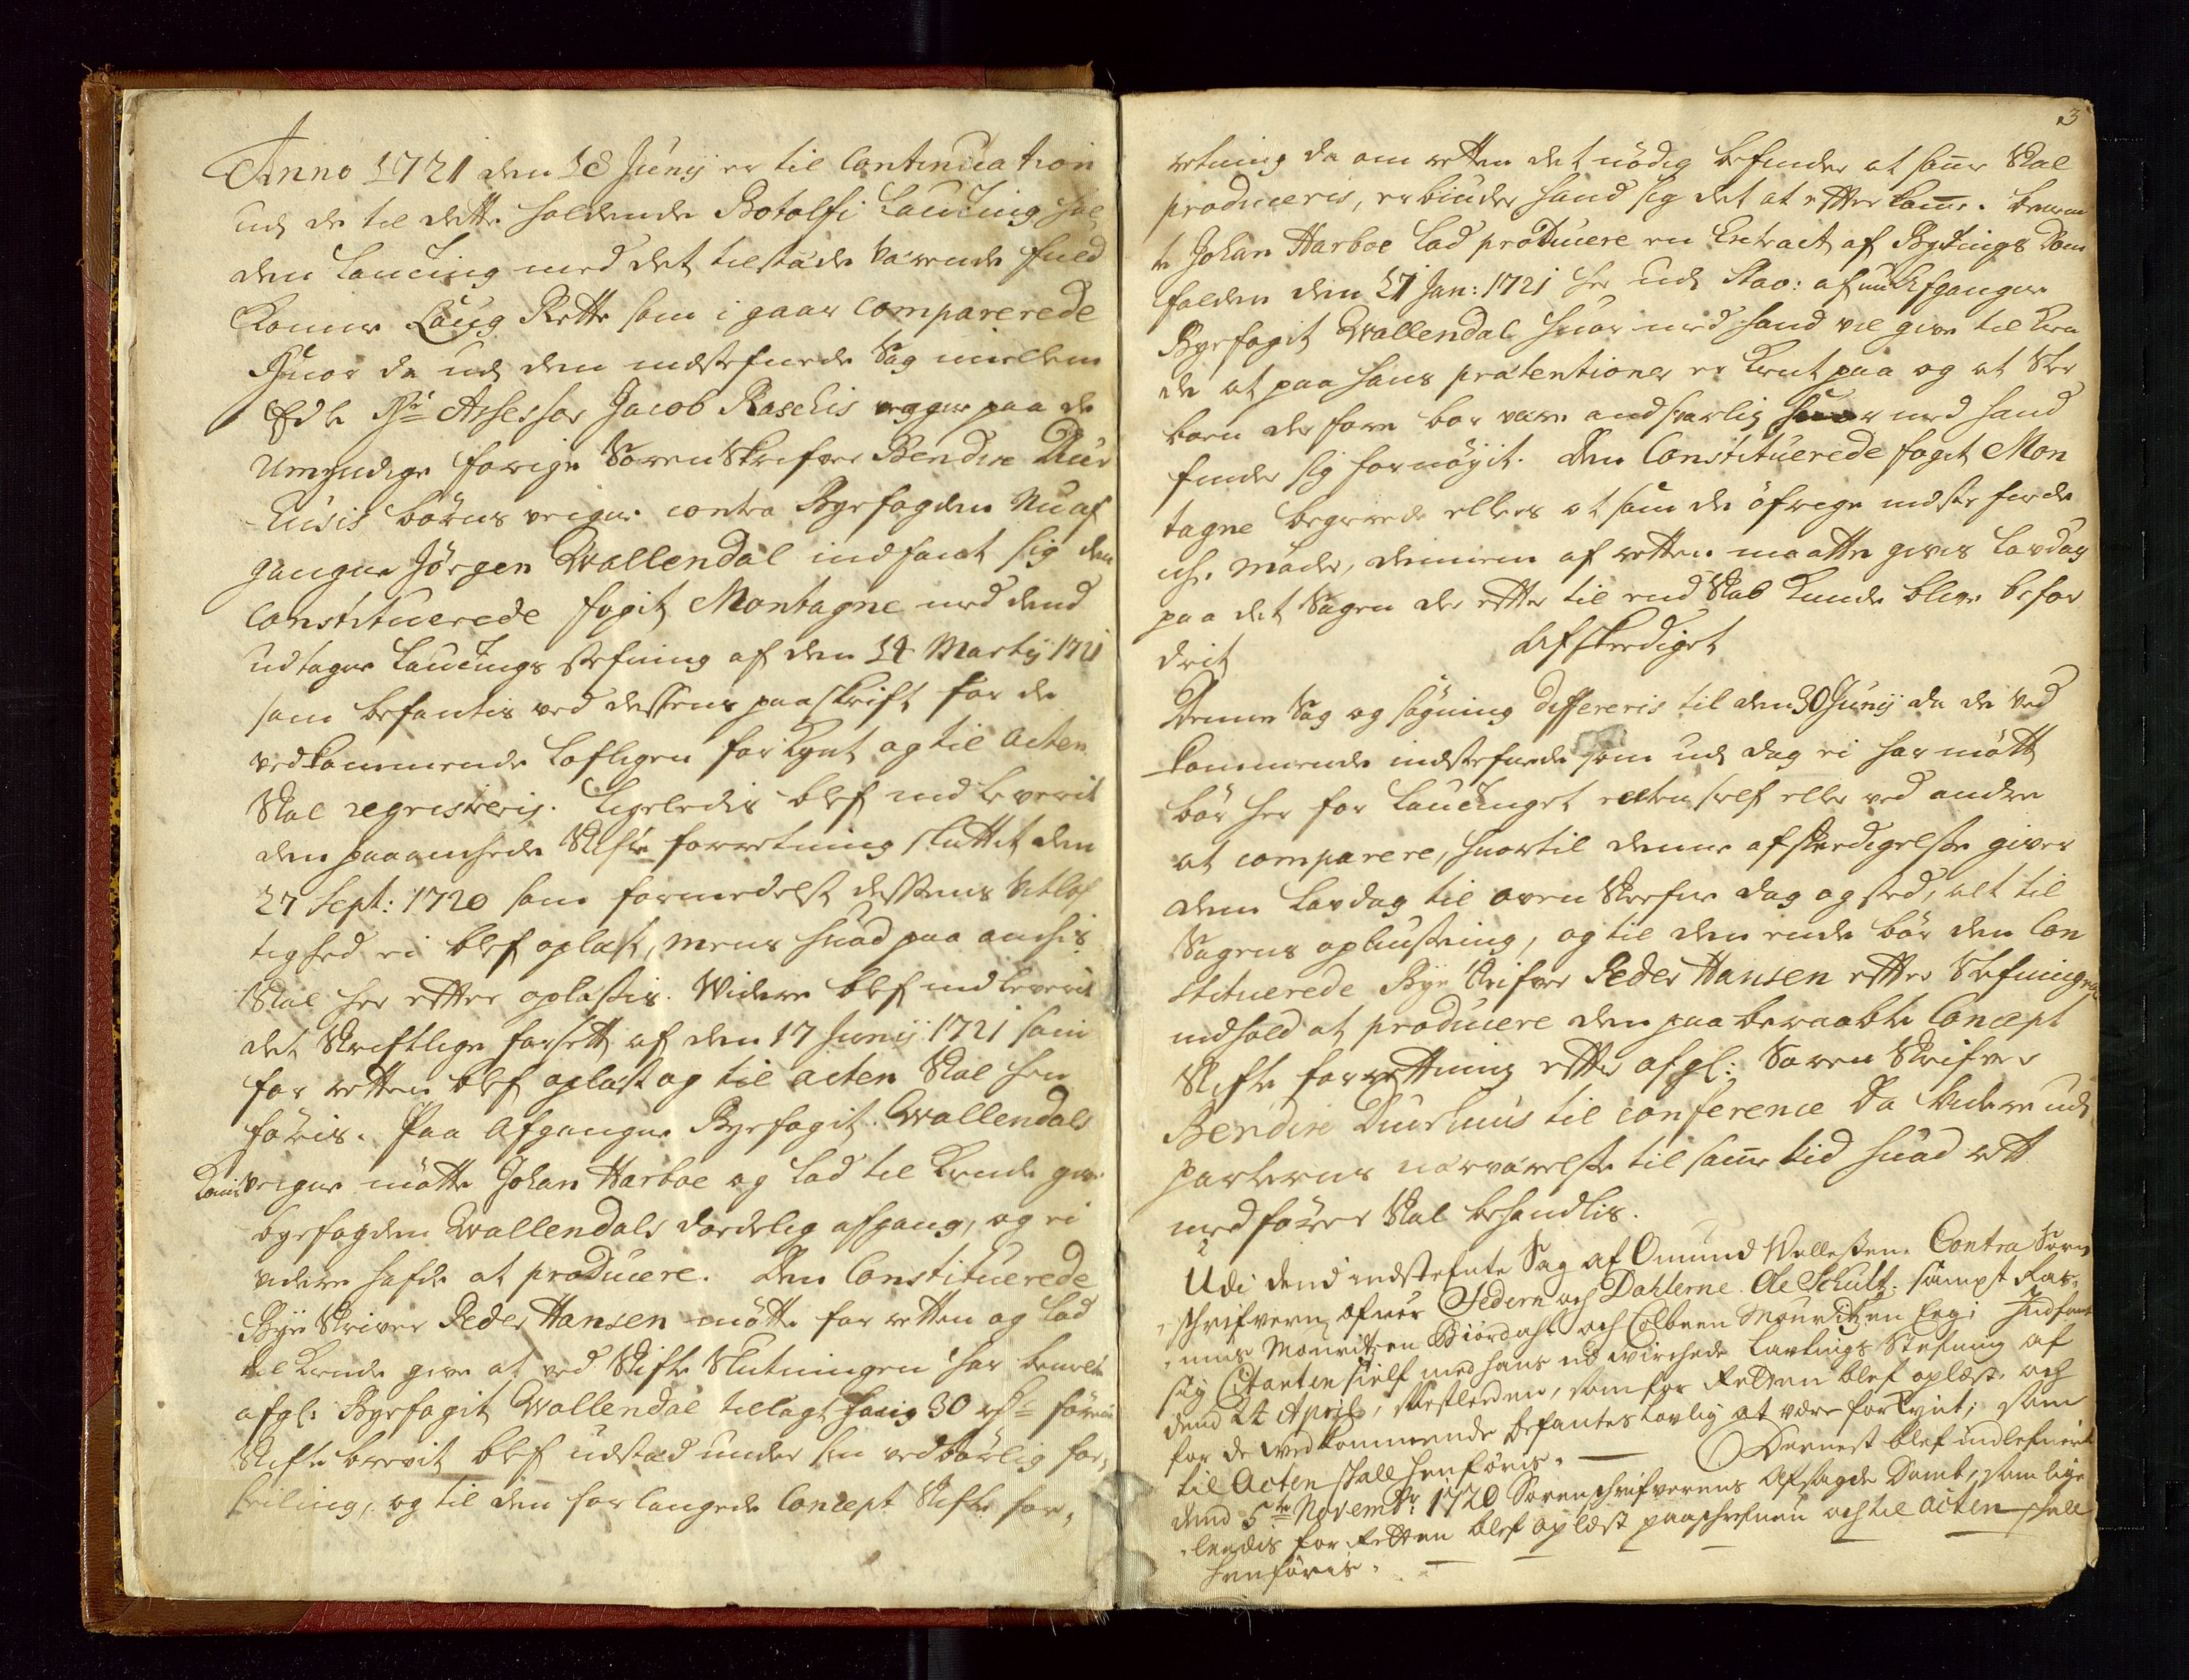 Anno 1721 den 18 Junij er til Continuation
udj de til dette holdende Botolfi Laugting hol
den Laugting med det tilstæde værende fuld
komne Laug Rette som i gaar comparerede
Hvor da udj den indstefnede Sag mellem
Edle Hr Assessor Jacob Raschis paa de
Umyndige forige Sorenskrifver Bendix Duer
husis børns veigne contra Byefogden Nu af
gangne Jørgen Wallendal indfant sig den
Constituerede fogit Montagne med dend
udtagne Lautings stefning af den 14 Martij 1721
som befantis ved dessens paaskrift for de
vedkommende lofligen forkynt og til acten
Skal registreris. Ligeledis blef indleverit
den paaanchede Skifte forretning sluttit den
27 Sept: 1720 som formedelst dessens Vitløf
tighed ei blef oplæst, mens huad paa anchis
Skal her etter oplæsis. Widere blef indleverit
det skriftlige forsett af den 17 Junij 1721 som
for retten blef oplæst og til acten Skal hen
føris. Paa afgangne Byefogit Wallendals
veigne møtte Johan Harboe og lod til kende give
byefogden Wallendals dødelig afgang, og ei
videre hafde at producere. Den Constituerede
Bye Skriver Peder Hansen møtte for retten og lod
til kende give at ved Skifte Slutningen har bemelte
afgl: Byefogit Wallendal tillagt sig 30 rdr førend
Skifte brevit blef udstæd under sin vedbørlig for,
seiling, og til den forlangede Concept Skifte for,
3
retning da om retten det nødig befinder at same Skal
produceris, erbiuder hand sig det at efterkome. bemel
te Johan Harboe lod producere en Extract af Byetings Dom
falden den 27 Jan: 1721 her udj Stav: af nu afgangne
Byefogit Wallendal huor med hand vil give til kien
de at paa hans prætentioner er kient paa og at Ster
boen der fore bør være andsvarlig huor med hand
finder sig fornøyit. Den Constituerede fogit Mon
tagne begierede ellers at som de øfrige indstefnede
ej møder, dennem af retten maatte givis Lavdag
paa det Sagen der efter til endskab kunde blive befor
drit
Afskeediget
Denne Sag og søgning differeris til den 30 Junij da de ved
kommende indstefnede som udj dag ei har møtt
bør her for Lautinget enten self eller ved andre
at comparere, huortil denne afskeedigelse giver
dem Lavdag til oven Skrefne dag og sted, alt til
Sagens oplysning, og til den ende bør den Con
stituerede Bye Skrifver Peder Hansen etter Stefningens
indhold at producere den paa beraabte Concept
Skifte forrettning etter afgl: Soren Skrifver
Bendix Duerhuus til conference Da videre udj
parternes nærværelse til same tid huad rett
medfører Skal behandlis.
2
Udi dend indstefnte Sag af Omund Vallesen Contra Soren
schrifveren ofver Jedern och Dahlerne Ole Schultz sampt Ras,
mus Mouridtzen Biørdahl och Colbeen Mouridtzen Eeg; Indfant
sig Citanten sielf med hans udvirchede Lavtings Stefning af
dend 24 April, som for Retten blef oplæst, och
for de vedkommende befantes lovlig at være forkynt, som
til Acten skall henføris. — Dernest blef indlefuerit
dend 5te Novembr 1720 Sorenschrifverens Afsagde Domb, som lige
ledis for Retten blef oplæst paaschrefven och til acten skall
henføris. —